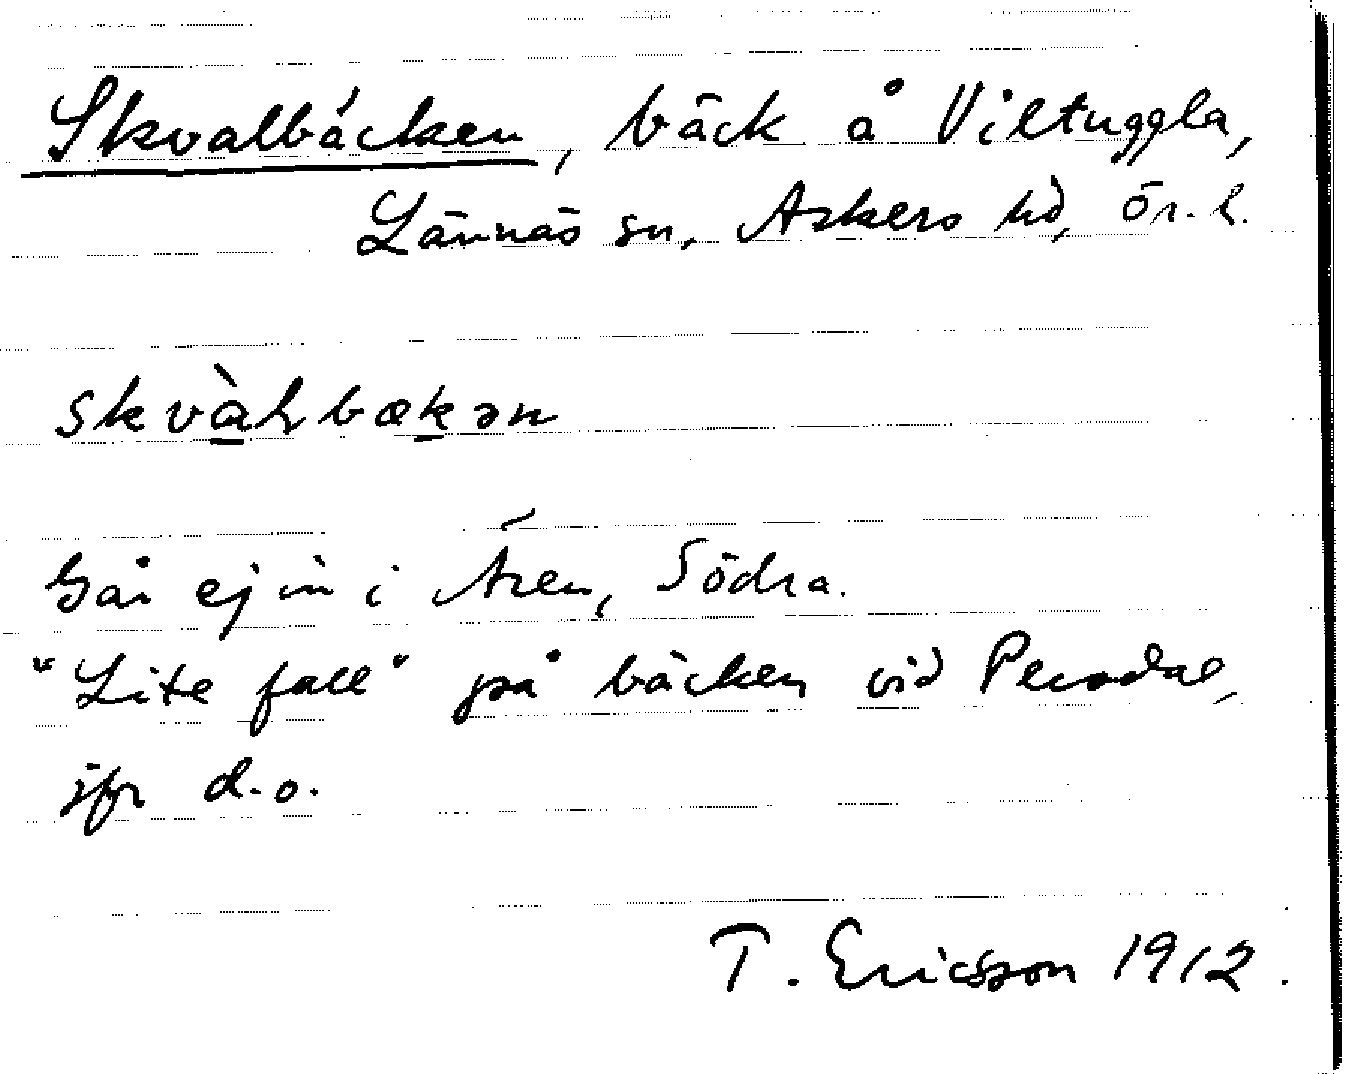 Skvalbäcken, bäck å Viltuggla,
Lännäs sn, Askers hd, Ör. l.
skvàlbækən
Går ej in i Åren, Södra.
"Lite fall" på bäcken vid Persdal,
jfr d.o.
T. Ericsson 1912.